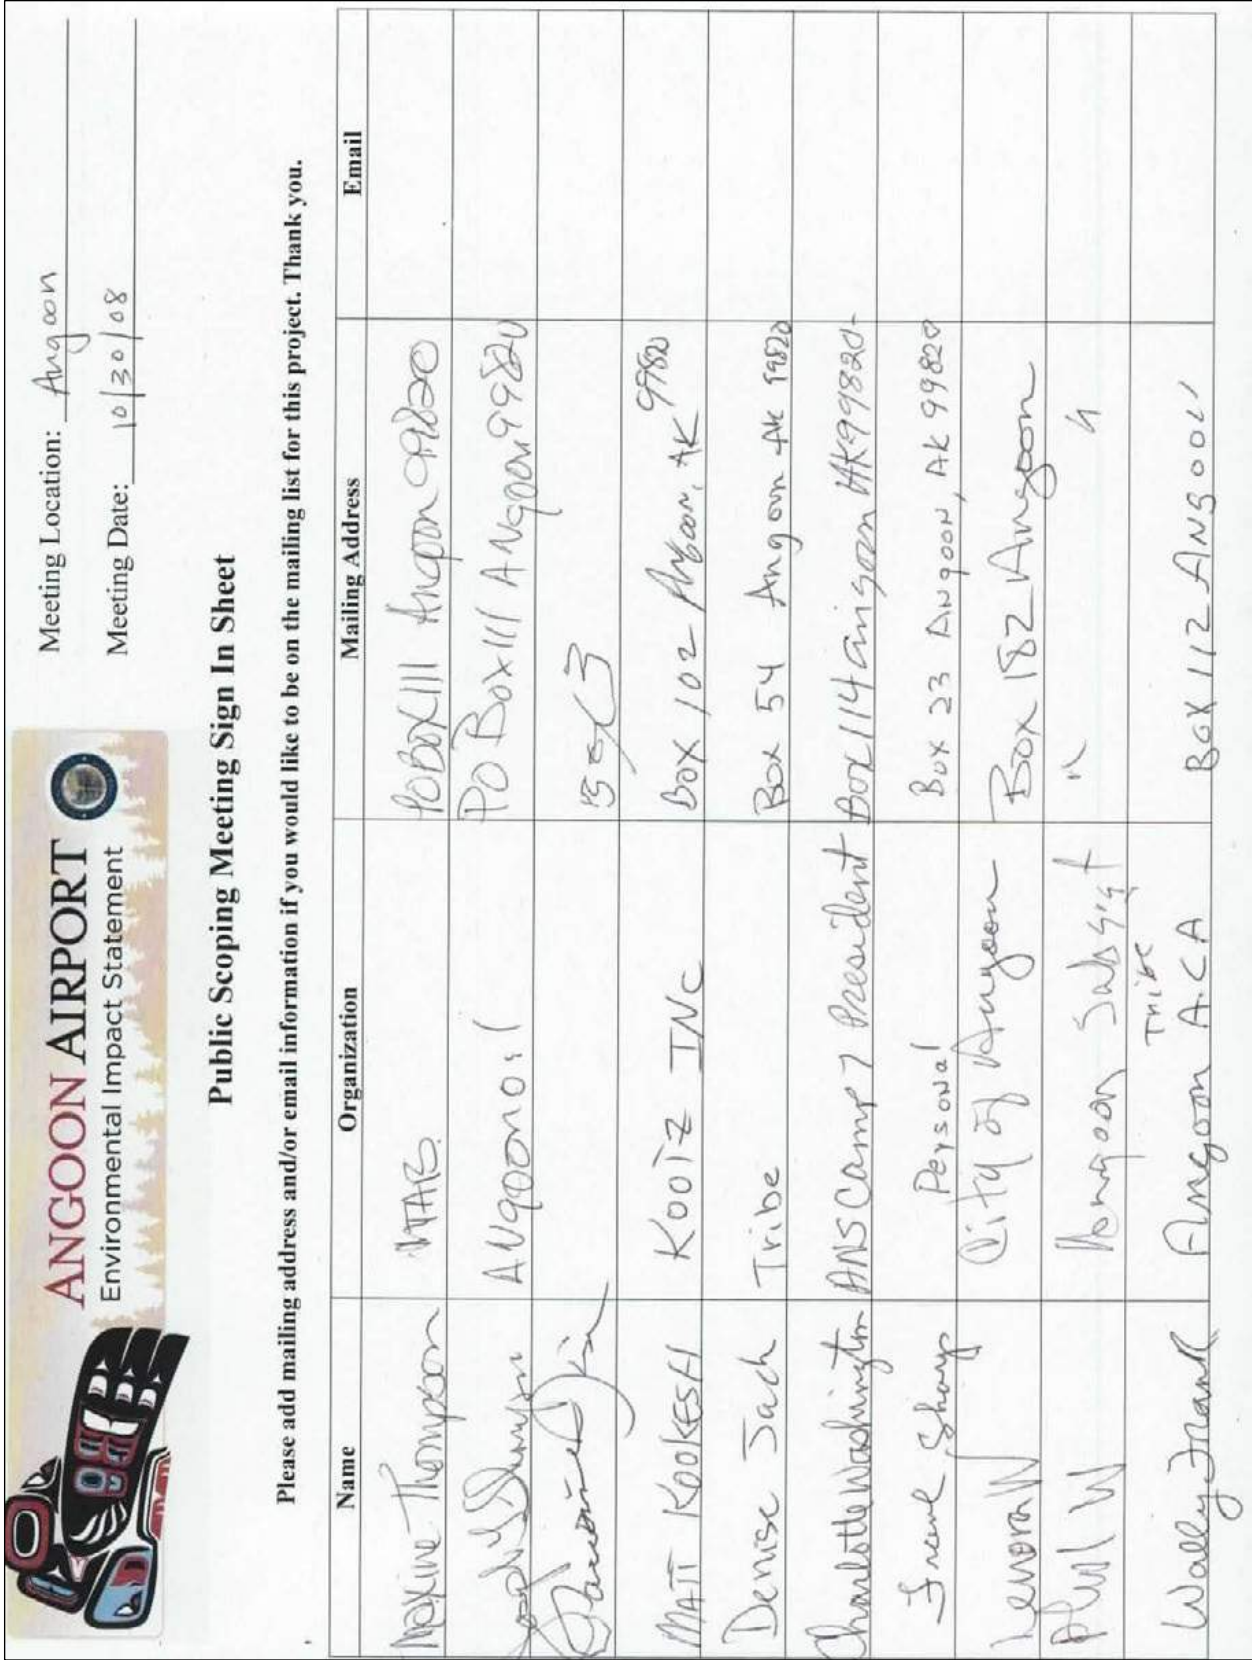 ANGOON AIRPORT
Environmental Impact Statement
Meeting Location: Angoon
Meeting Date: 10/30/08
Public Scoping Meeting Sign In Sheet
Please add mailing address and/or email information if you would like to be on the mailing list for this project. Thank you.
Name Organization Mailing Address Email
Maxine Thompson POBox111 Angoon 99820
PO Box 111 Angoon 99820
Box 3
MATT KOOKESH KOOTZ INC Box 102 Angoon, AK 99820
Denise Jack Tribe Box 54 Angoon AK 99820
Charlotte Washington ANS Camp 7 President Box 114 angoon AK 99820
Frank Sharp Personal Box 23 Angoon, AK 99820
City of Angoon Box 182 Angoon
Angoon " "
Tribe
Wally Frank Angoon A.C.A Box 112 Angoon